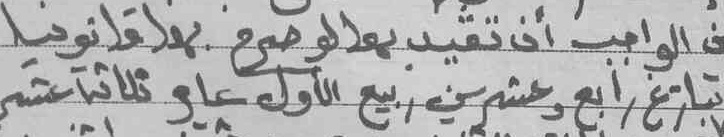 في الواجب أن تقيد بهذا لو ضوح بهذا قانونيا
بتاريخ رابع وعشرين ربيع الأول عام ثلاثة عشر